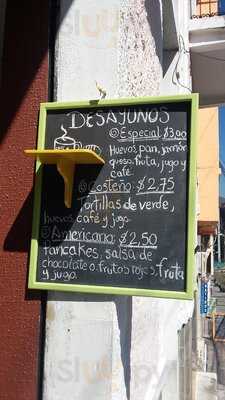 DESAYUNOS
Especial: $3,00
Huevos, pan, jamón
queso, fruta, jugo y
café
Costeño: $2,75
Tortillas de verde,
huevos, café y jugo
Americano: $2,50
Pancakes, salsa de
chocolate o frutos rojos, fruta
y jugo.